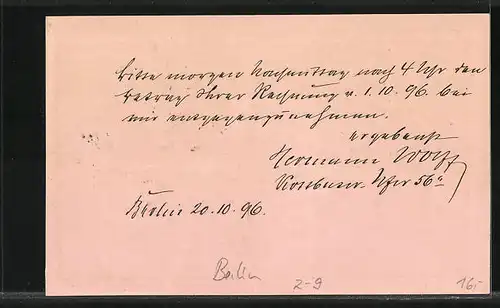 Bitte morgen Nachmittag nach 4 Uhr den
Betrag Ihrer Rechnung v. 1.10.96. bei
mir entgegenzunehmen.
ergebenst
Hermann Wolff
Kottbuser Ufer 56a
Berlin 20.10.96.
Berlin
z-9
16,-